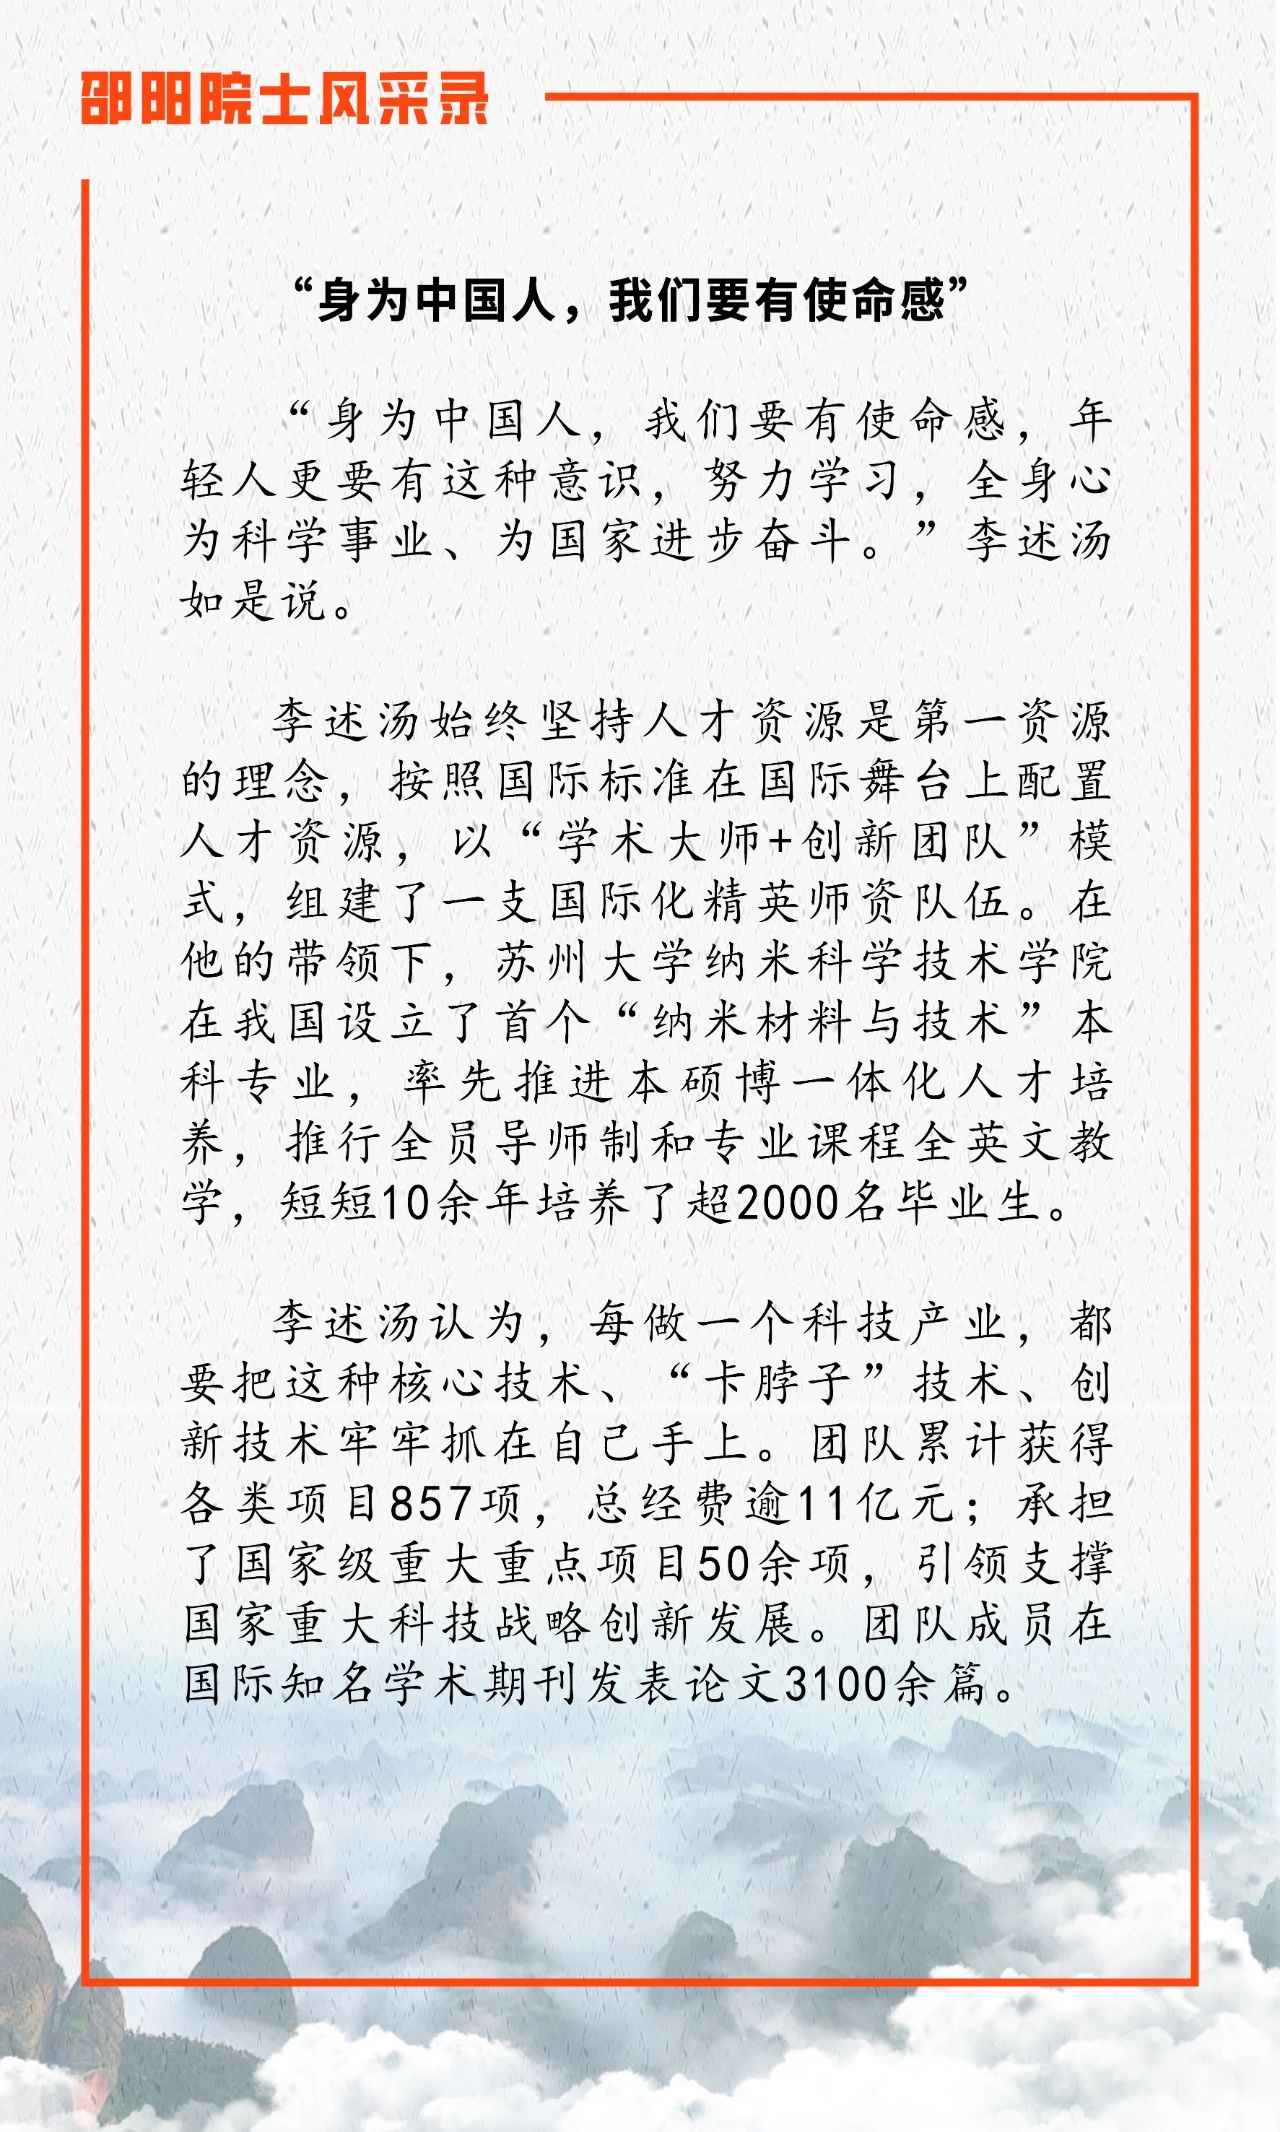 邵阳院士风采录
“身为中国人，我们要有使命感”
“身为中国人，我们要有使命感，年
轻人更要有这种意识，努力学习，全身心
为科学事业、为国家进步奋斗。”李述汤
如是说。
李述汤始终坚持人才资源是第一资源
的理念，按照国际标准在国际舞台上配置
人才资源，以“学术大师+创新团队”模
式，组建了一支国际化精英师资队伍。在
他的带领下，苏州大学纳米科学技术学院
在我国设立了首个“纳米材料与技术”本
科专业，率先推进本硕博一体化人才培
养，推行全员导师制和专业课程全英文教
学，短短10余年培养了超2000名毕业生。
李述汤认为，每做一个科技产业，都
要把这种核心技术、“卡脖子”技术、创
新技术牢牢抓在自己手上。团队累计获得
各类项目857项，总经费逾11亿元；承担
了国家级重大重点项目50余项，引领支撑
国家重大科技战略创新发展。团队成员在
国际知名学术期刊发表论文3100余篇。